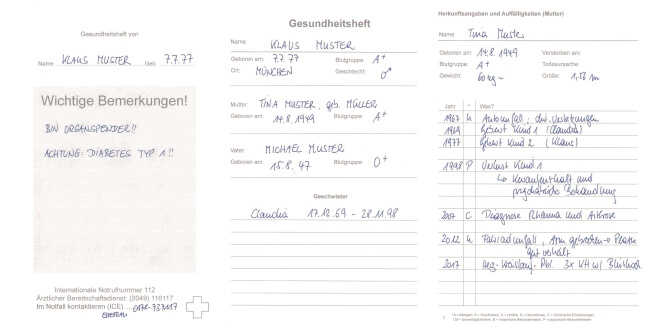 Gesundheitsheft von
Name KLAUS MUSTER Geb: 7.7.77
Wichtige Bemerkungen!
BIN ORGANSPENDER!!
ACHTUNG: DIABETES TYP 1!!
Internationale Notrufnummer 112
Ärztlicher Bereitschaftsdienst: (0049) 116117
Im Notfall kontaktieren (ICE)
EHEFRAU
Gesundheitsheft
Name: KLAUS MUSTER
Geboren am: 7.7.77 Blutgruppe: A+
Ort: MÜNCHEN Geschlecht: ♂
Mutter: TINA MUSTER, geb. MÜLLER
Geboren am: 14.8.1949 Blutgruppe: A+
Vater: MICHAEL MUSTER
Geboren am: 15.8.47 Blutgruppe: O+
Geschwister
Claudia 17.12.69 - 28.11.98
Herkunftsangaben und Auffälligkeiten (Mutter)
Name: Tina Muster
Geboren am: 14.8.1949 Verstorben am:
Blutgruppe: A+ Todesursache:
Gewicht: 60 kg ~ Größe: 1,58 m
Jahr * Was?
1967 U Autounfall; div. Verletzungen
1969 Geburt Kind 1 (Claudia)
1977 Geburt Kind 2 (Klaus)
1998 P Verlust Kind 1
↳ KH Aufenthalt und
psychiatrische Behandlung
2007 C Diagnose Rheuma und Arthrose
2012 U Fahrradunfall, Arm gebrochen → Platte
gut verheilt
2017 Herz-Kreislauf-Pbl. 3x KH w/ Bluthoch.